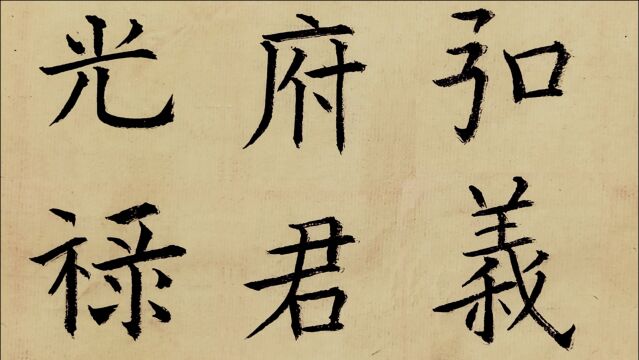 弘義
府君
光禄